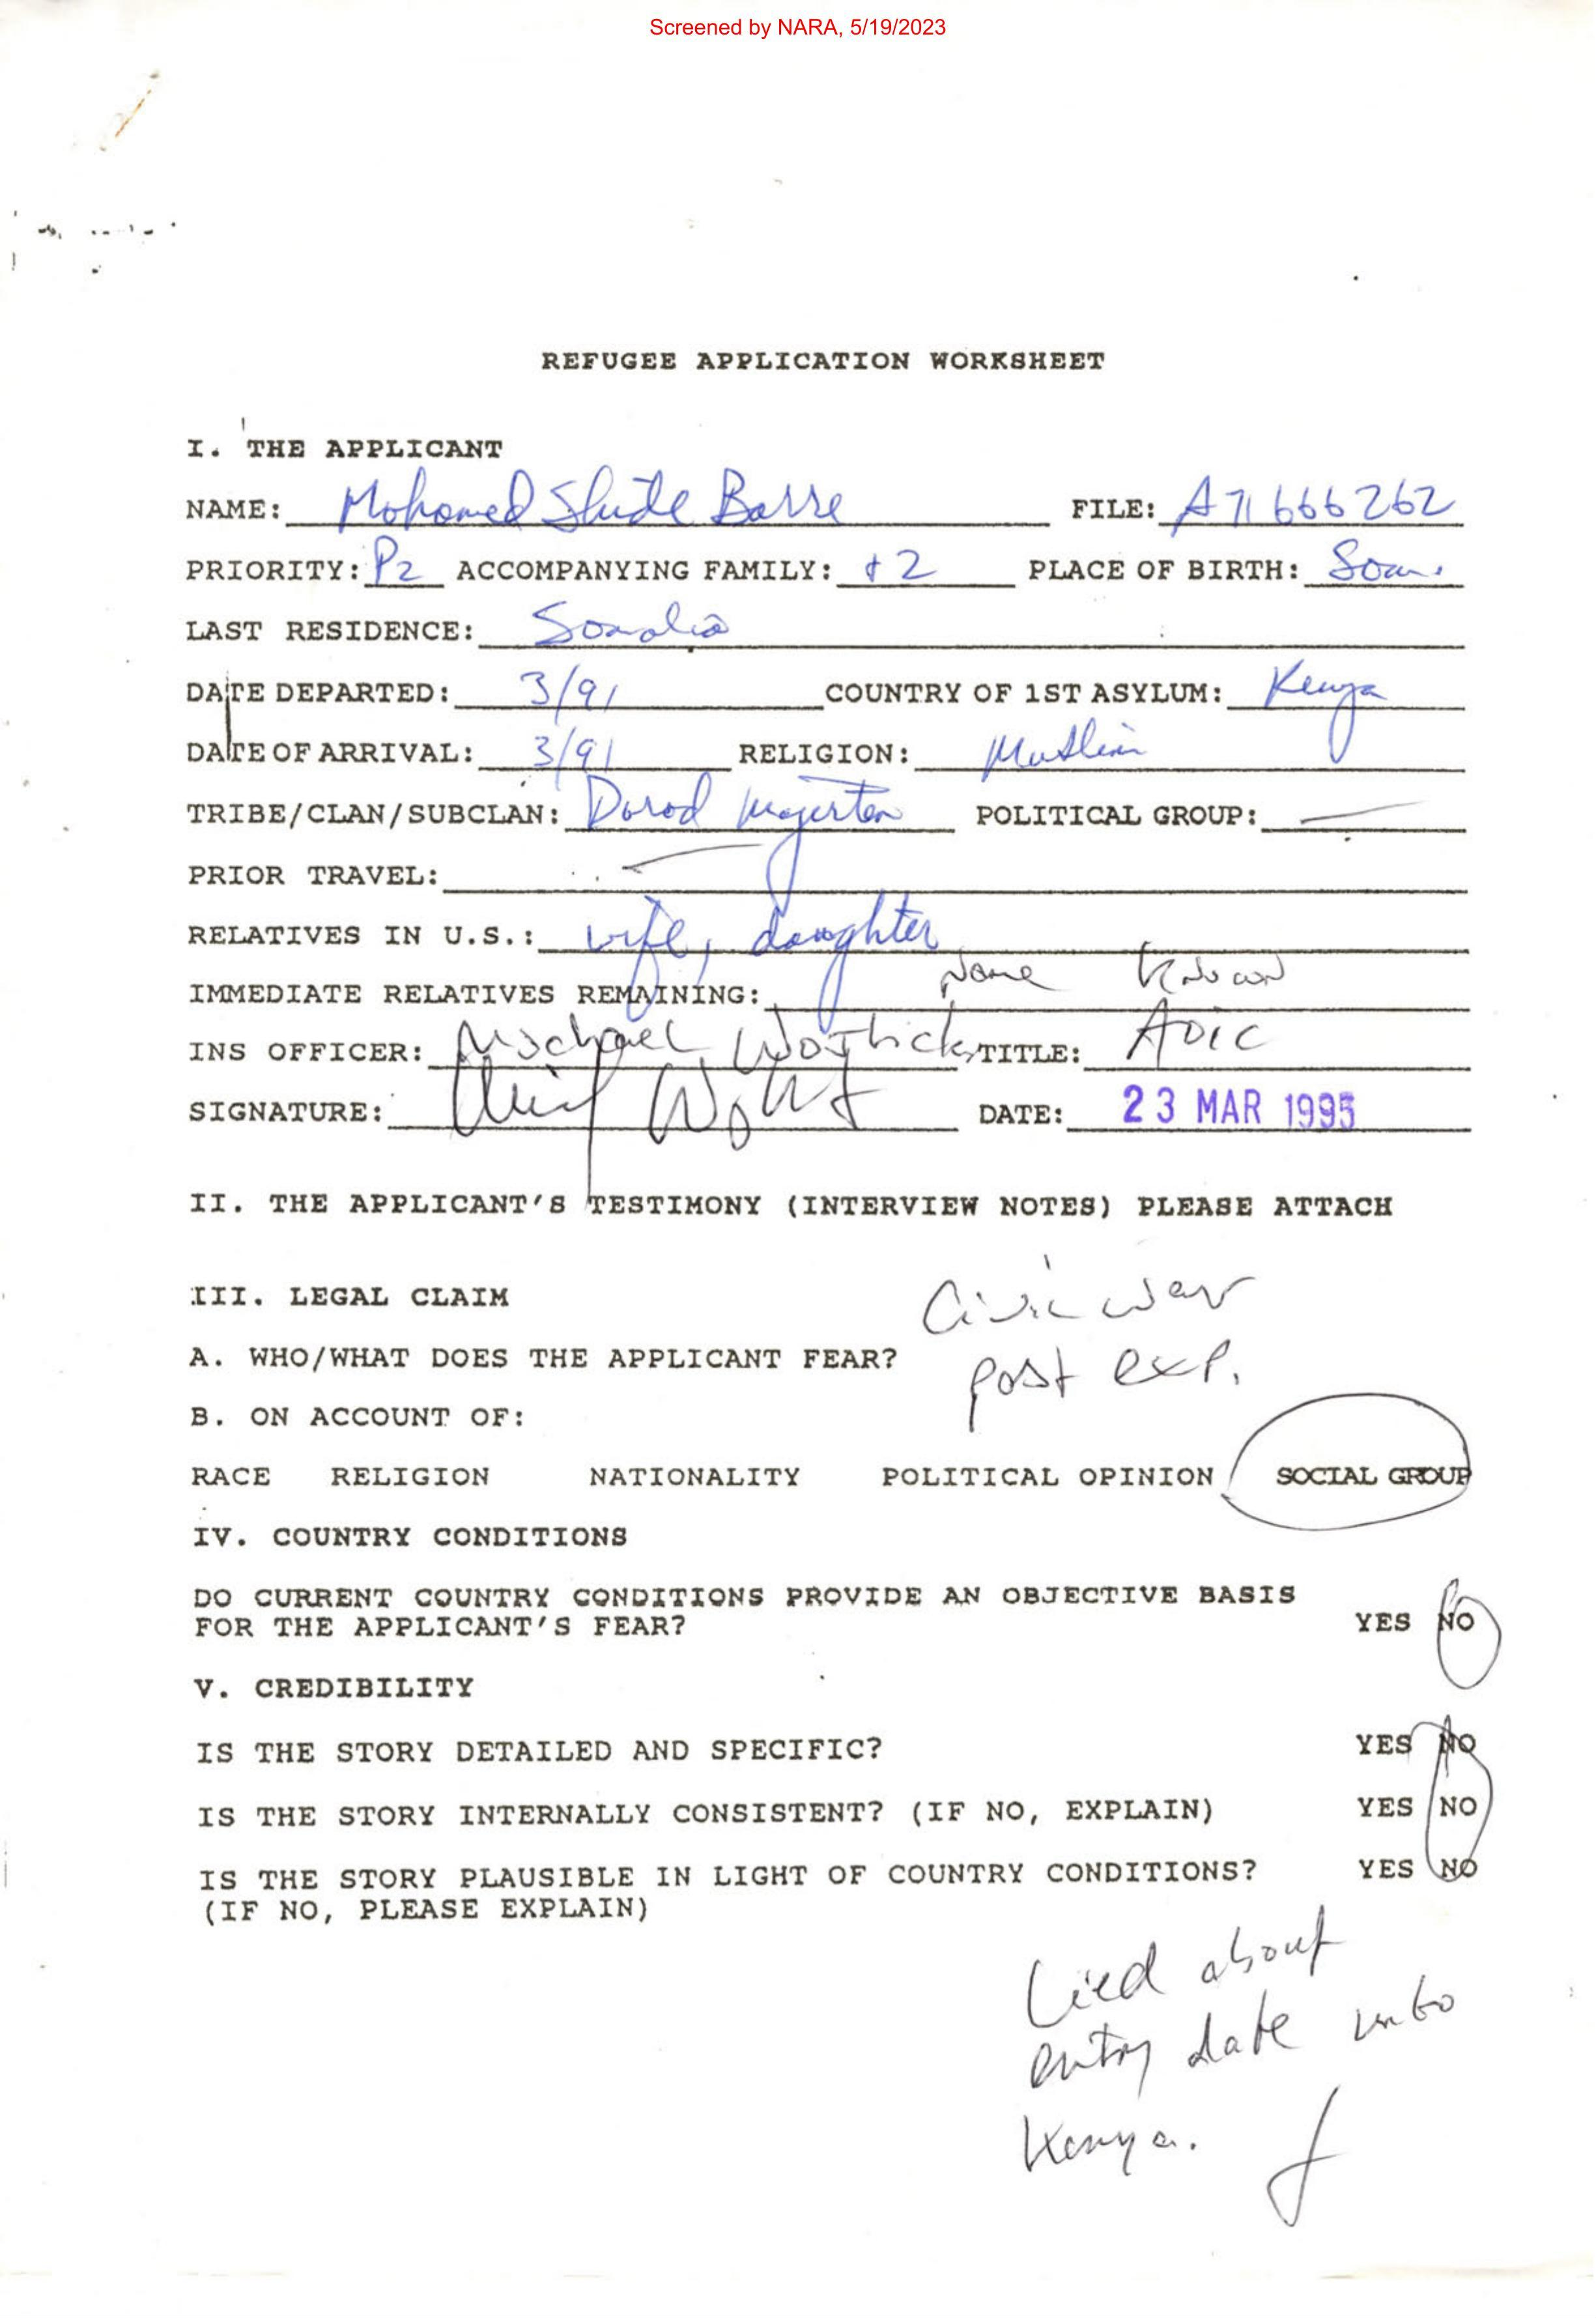 Screened by NARA, 5/19/2023
REFUGEE APPLICATION WORKSHEET
I. THE APPLICANT
NAME: Mohamed Shide Barre FILE: A71 666 262
PRIORITY: P2 ACCOMPANYING FAMILY: +2 PLACE OF BIRTH: Som.
LAST RESIDENCE: Somalia
DATE DEPARTED: 3/91 COUNTRY OF 1ST ASYLUM: Kenya
DATE OF ARRIVAL: 3/91 RELIGION: Muslim
TRIBE/CLAN/SUBCLAN: Darod Majerten POLITICAL GROUP: —
PRIOR TRAVEL: —
RELATIVES IN U.S.: wife, daughter
IMMEDIATE RELATIVES REMAINING: None Known
INS OFFICER: Michael TITLE: AOIC
SIGNATURE: DATE: 23 MAR 1995
II. THE APPLICANT'S TESTIMONY (INTERVIEW NOTES) PLEASE ATTACH
III. LEGAL CLAIM
Civil war
A. WHO/WHAT DOES THE APPLICANT FEAR? past exp.
B. ON ACCOUNT OF:
RACE RELIGION NATIONALITY POLITICAL OPINION SOCIAL GROUP
IV. COUNTRY CONDITIONS
DO CURRENT COUNTRY CONDITIONS PROVIDE AN OBJECTIVE BASIS
FOR THE APPLICANT'S FEAR? YES NO
V. CREDIBILITY
IS THE STORY DETAILED AND SPECIFIC? YES NO
IS THE STORY INTERNALLY CONSISTENT? (IF NO, EXPLAIN) YES NO
IS THE STORY PLAUSIBLE IN LIGHT OF COUNTRY CONDITIONS? YES NO
(IF NO, PLEASE EXPLAIN)
Lied about
entry date into
Kenya.